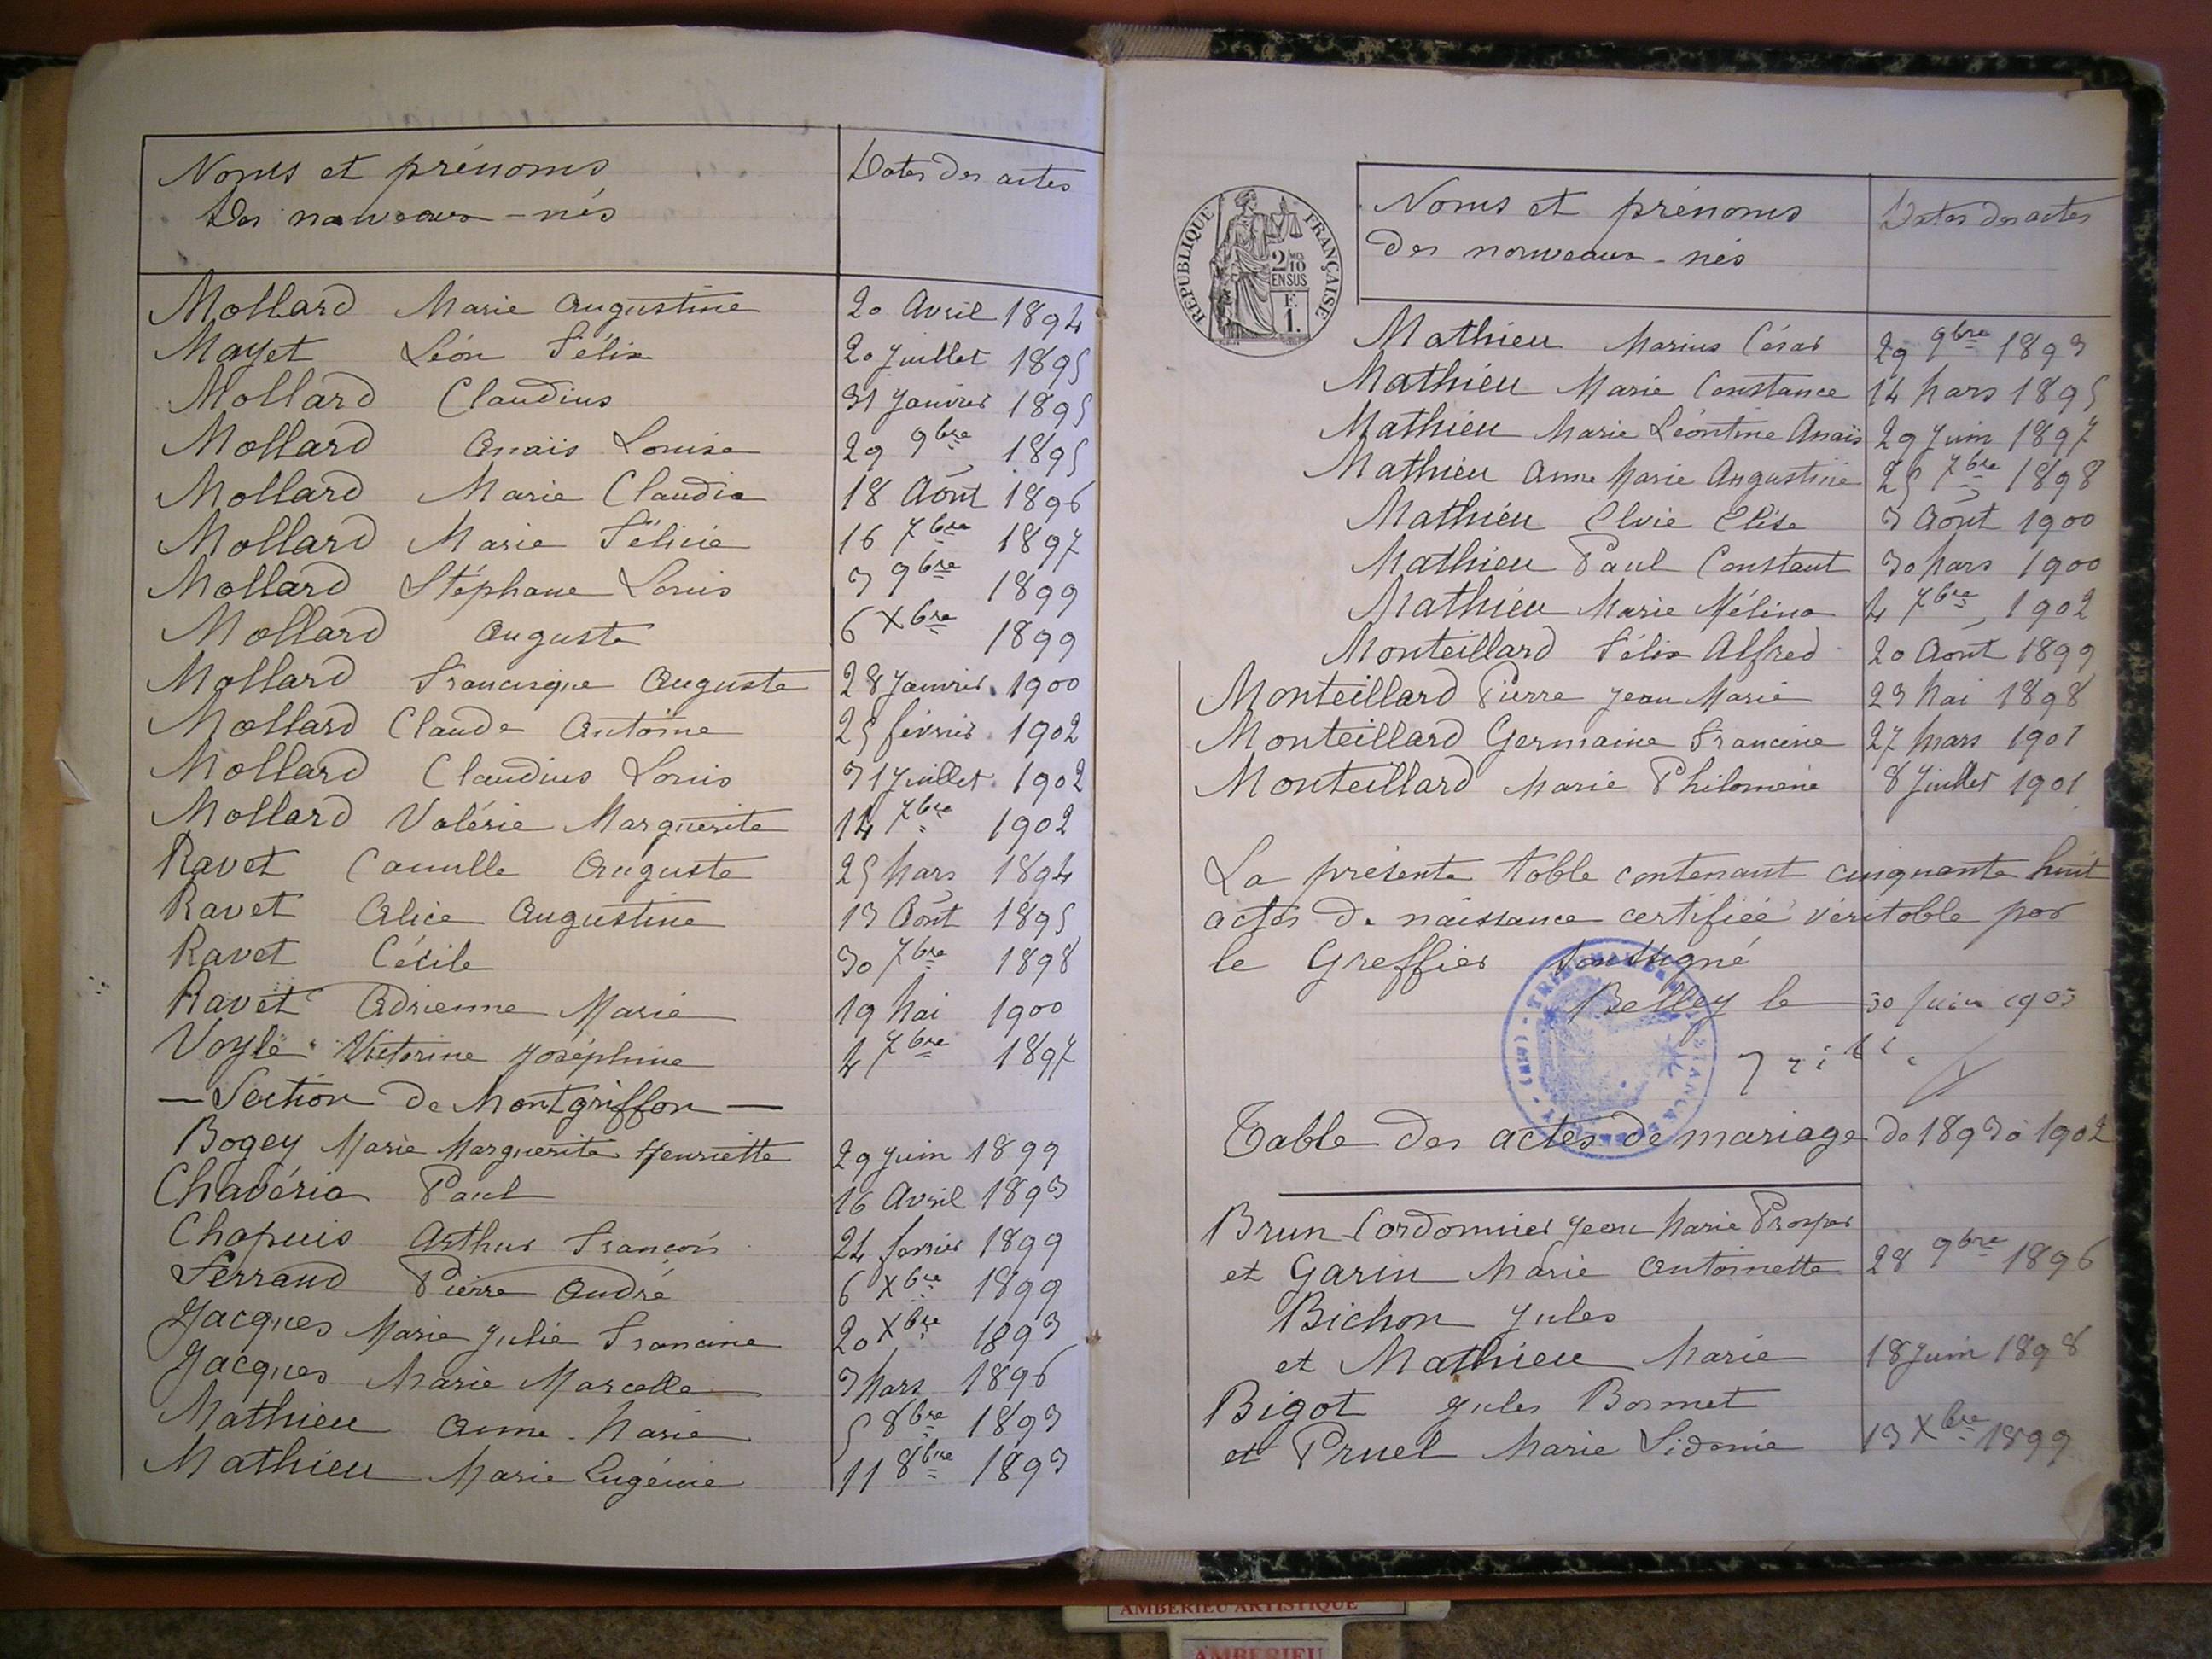 Noms et prénoms Dates des actes
Des nouveaux-nés
Mollard Marie Augustine 20 Avril 1894
Mayet Léon Félix 20 Juillet 1895
Mollard Claudius 31 Janvier 1895
Mollard Anaïs Louise 29 9bre 1895
Mollard Marie Claudia 18 Août 1896
Mollard Marie Félicie 16 7bre 1897
Mollard Stéphane Louis 3 9bre 1899
Mollard Auguste 6 Xbre 1899
Mollard Francisque Auguste 28 Janvier 1900
Mollard Claude Antoine 25 février 1902
Mollard Claudius Louis 31 Juillet 1902
Mollard Valérie Marguerite 14 7bre 1902
Ravet Camille Auguste 25 Mars 1894
Ravet Alice Augustine 13 Août 1895
Ravet Cécile 30 7bre 1898
Ravet Adrienne Marie 19 Mai 1900
Voyle Victorine Joséphine 4 7bre 1897
— Section de Montgriffon —
Bogey Marie Marguerite Henriette 29 Juin 1899
Chavéria Paul 16 Avril 1893
Chapuis Arthur François 24 fevrier 1899
Ferrand Pierre André 6 Xbre 1899
Jacques Marie Julie Francine 20 Xbre 1893
Jacques Marie Marcelle 3 Mars 1896
Mathieu Anne-Marie 5 8bre 1893
Mathieu Marie Eugénie 11 8bre 1893
RÉPUBLIQUE FRANÇAISE
2/10
EN SUS
F.
1.
Noms et prénoms Dates des actes
des nouveaux-nés
Mathieu Marius César 29 9bre 1893
Mathieu Marie Constance 14 Mars 1895
Mathieu Marie Léontine Anaïs 29 Juin 1897
Mathieu Anne Marie Augustine 25 7bre 1898
Mathieu Elvie Elise 3 Août 1900
Mathieu Paul Constant 30 Mars 1900
Mathieu Marie Mélina 4 7bre 1902
Monteillard Félix Alfred 20 Août 1899
Monteillard Pierre Jean Marie 23 Mai 1898
Monteillard Germaine Francine 27 Mars 1901
Monteillard Marie Philomène 8 Juillet 1901
La présente table contenant cinquante huit
actes de naissance certifiée véritable par
le Greffier soussigné
Belley le 30 Juin 1903
Table des actes de mariage de 1893 à 1902
Brun Cordonnier Jean Marie Prosper
et Garin Marie Antoinette 28 9bre 1896
Bichon Jules
et Mathieu Marie 18 Juin 1898
Bigot Jules Bonnet
et Pruel Marie Sidonie 13 Xbre 1899
AMBERIEU ARTISTIQUE
AMBERIEU